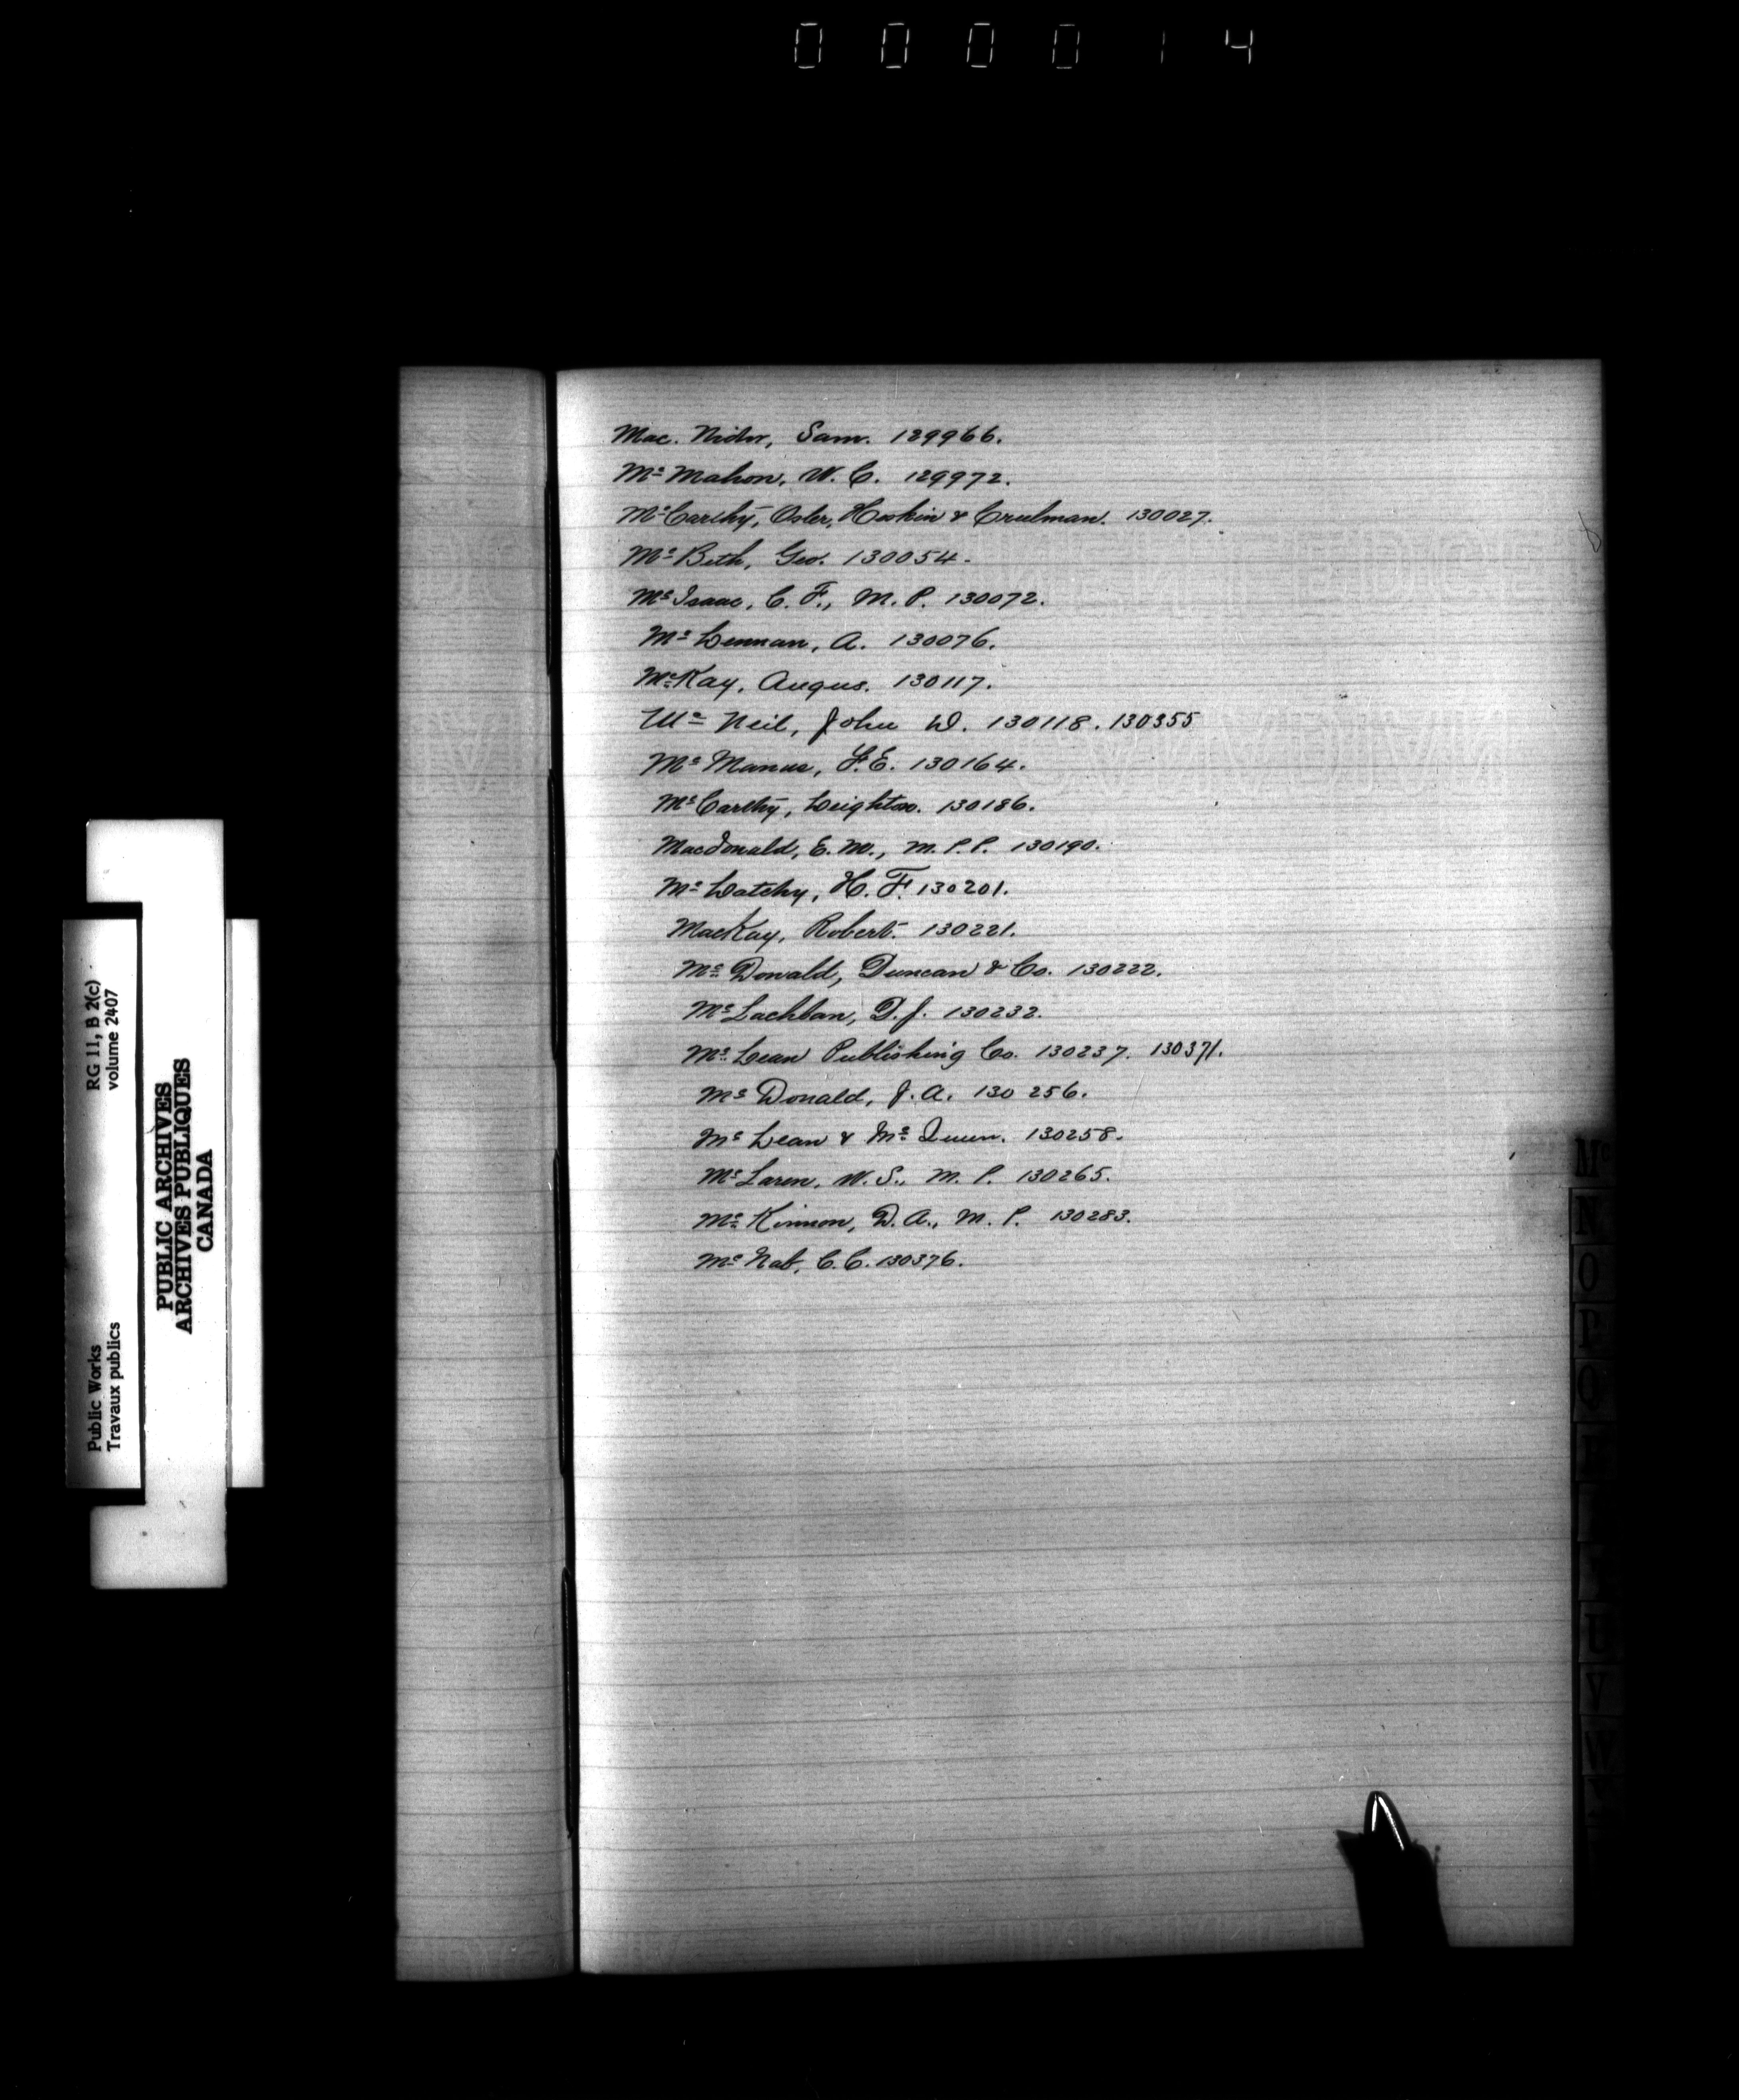 000014
Mac. Nider, Sam. 129966.
Mc Mahon, W. C. 129972.
McCarthy, Osler, Hoskin & Creelman. 130027.
Mc Beth, Geo. 130054.
Mc Isaac, C. F., M. P. 130072.
Mc Lennan, A. 130076.
McKay, Angus. 130117.
Mc Neil, John D. 130118. 130355
Mc Manus, F. E. 130164.
McCarthy, Leighton. 130186.
Macdonald, E. M., M. P. P. 130190.
Mc Latchy, H. F. 130201.
MacKay, Robert. 130221.
Mc Donald, Duncan & Co. 130222.
Mc Lachlan, D. J. 130232.
Mc Lean Publishing Co. 130237. 130371.
Mc Donald, J. A. 130 256.
Mc Lean & Mc Quinn. 130258.
Mc Laren, W. S., M. P. 130265.
Mc Kinnon, D. A., M. P. 130283.
Mc Nab, C. C. 130376.
Mc
O
P
Q
U
V
W
Public Works
Travaux publics
RG 11, B 2(c)
volume 2407
PUBLIC ARCHIVES
ARCHIVES PUBLIQUES
CANADA